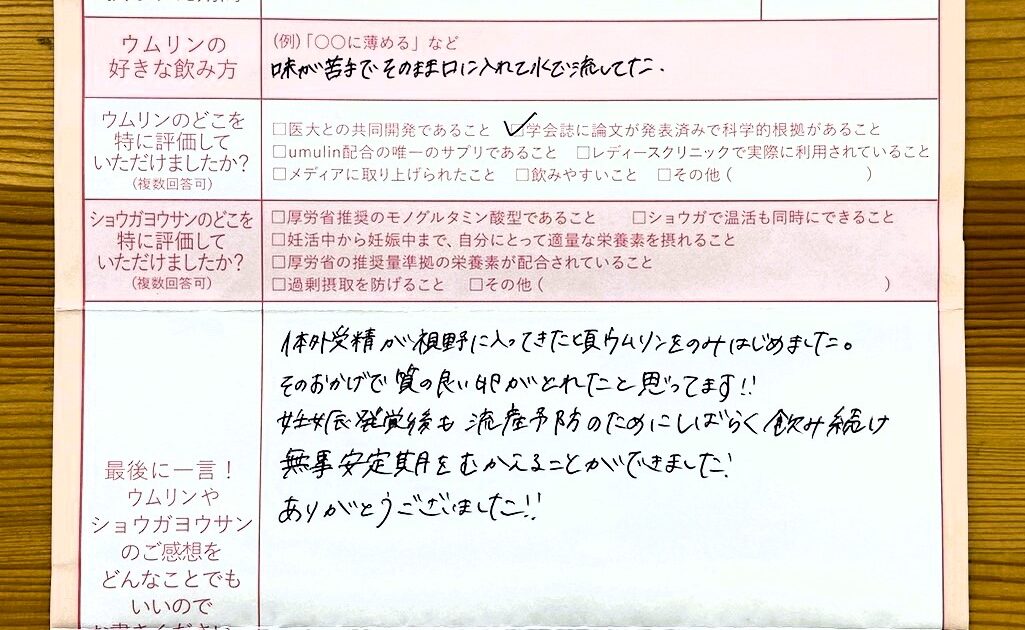 ウムリンの
好きな飲み方
(例)「〇〇に薄める」など
味が苦手でそのまま口に入れて水で流してた.
ウムリンのどこを
特に評価して
いただけましたか?
(複数回答可)
□医大との共同開発であること ✓□学会誌に論文が発表済みで科学的根拠があること
□umulin配合の唯一のサプリであること □レディースクリニックで実際に利用されていること
□メディアに取り上げられたこと □飲みやすいこと □その他( )
ショウガヨウサンのどこを
特に評価して
いただけましたか?
(複数回答可)
□厚労省推奨のモノグルタミン酸型であること □ショウガで温活も同時にできること
□妊活中から妊娠中まで、自分にとって適量な栄養素を摂れること
□厚労省の推奨量準拠の栄養素が配合されていること
□過剰摂取を防げること □その他( )
最後に一言!
ウムリンや
ショウガヨウサン
のご感想を
どんなことでも
いいので
体外受精が視野に入ってきた頃ウムリンをのみはじめました。
そのおかげで質の良い卵がとれたと思ってます!!
妊娠発覚後も流産予防のためにしばらく飲み続け
無事安定期をむかえることができました!
ありがとうございました!!